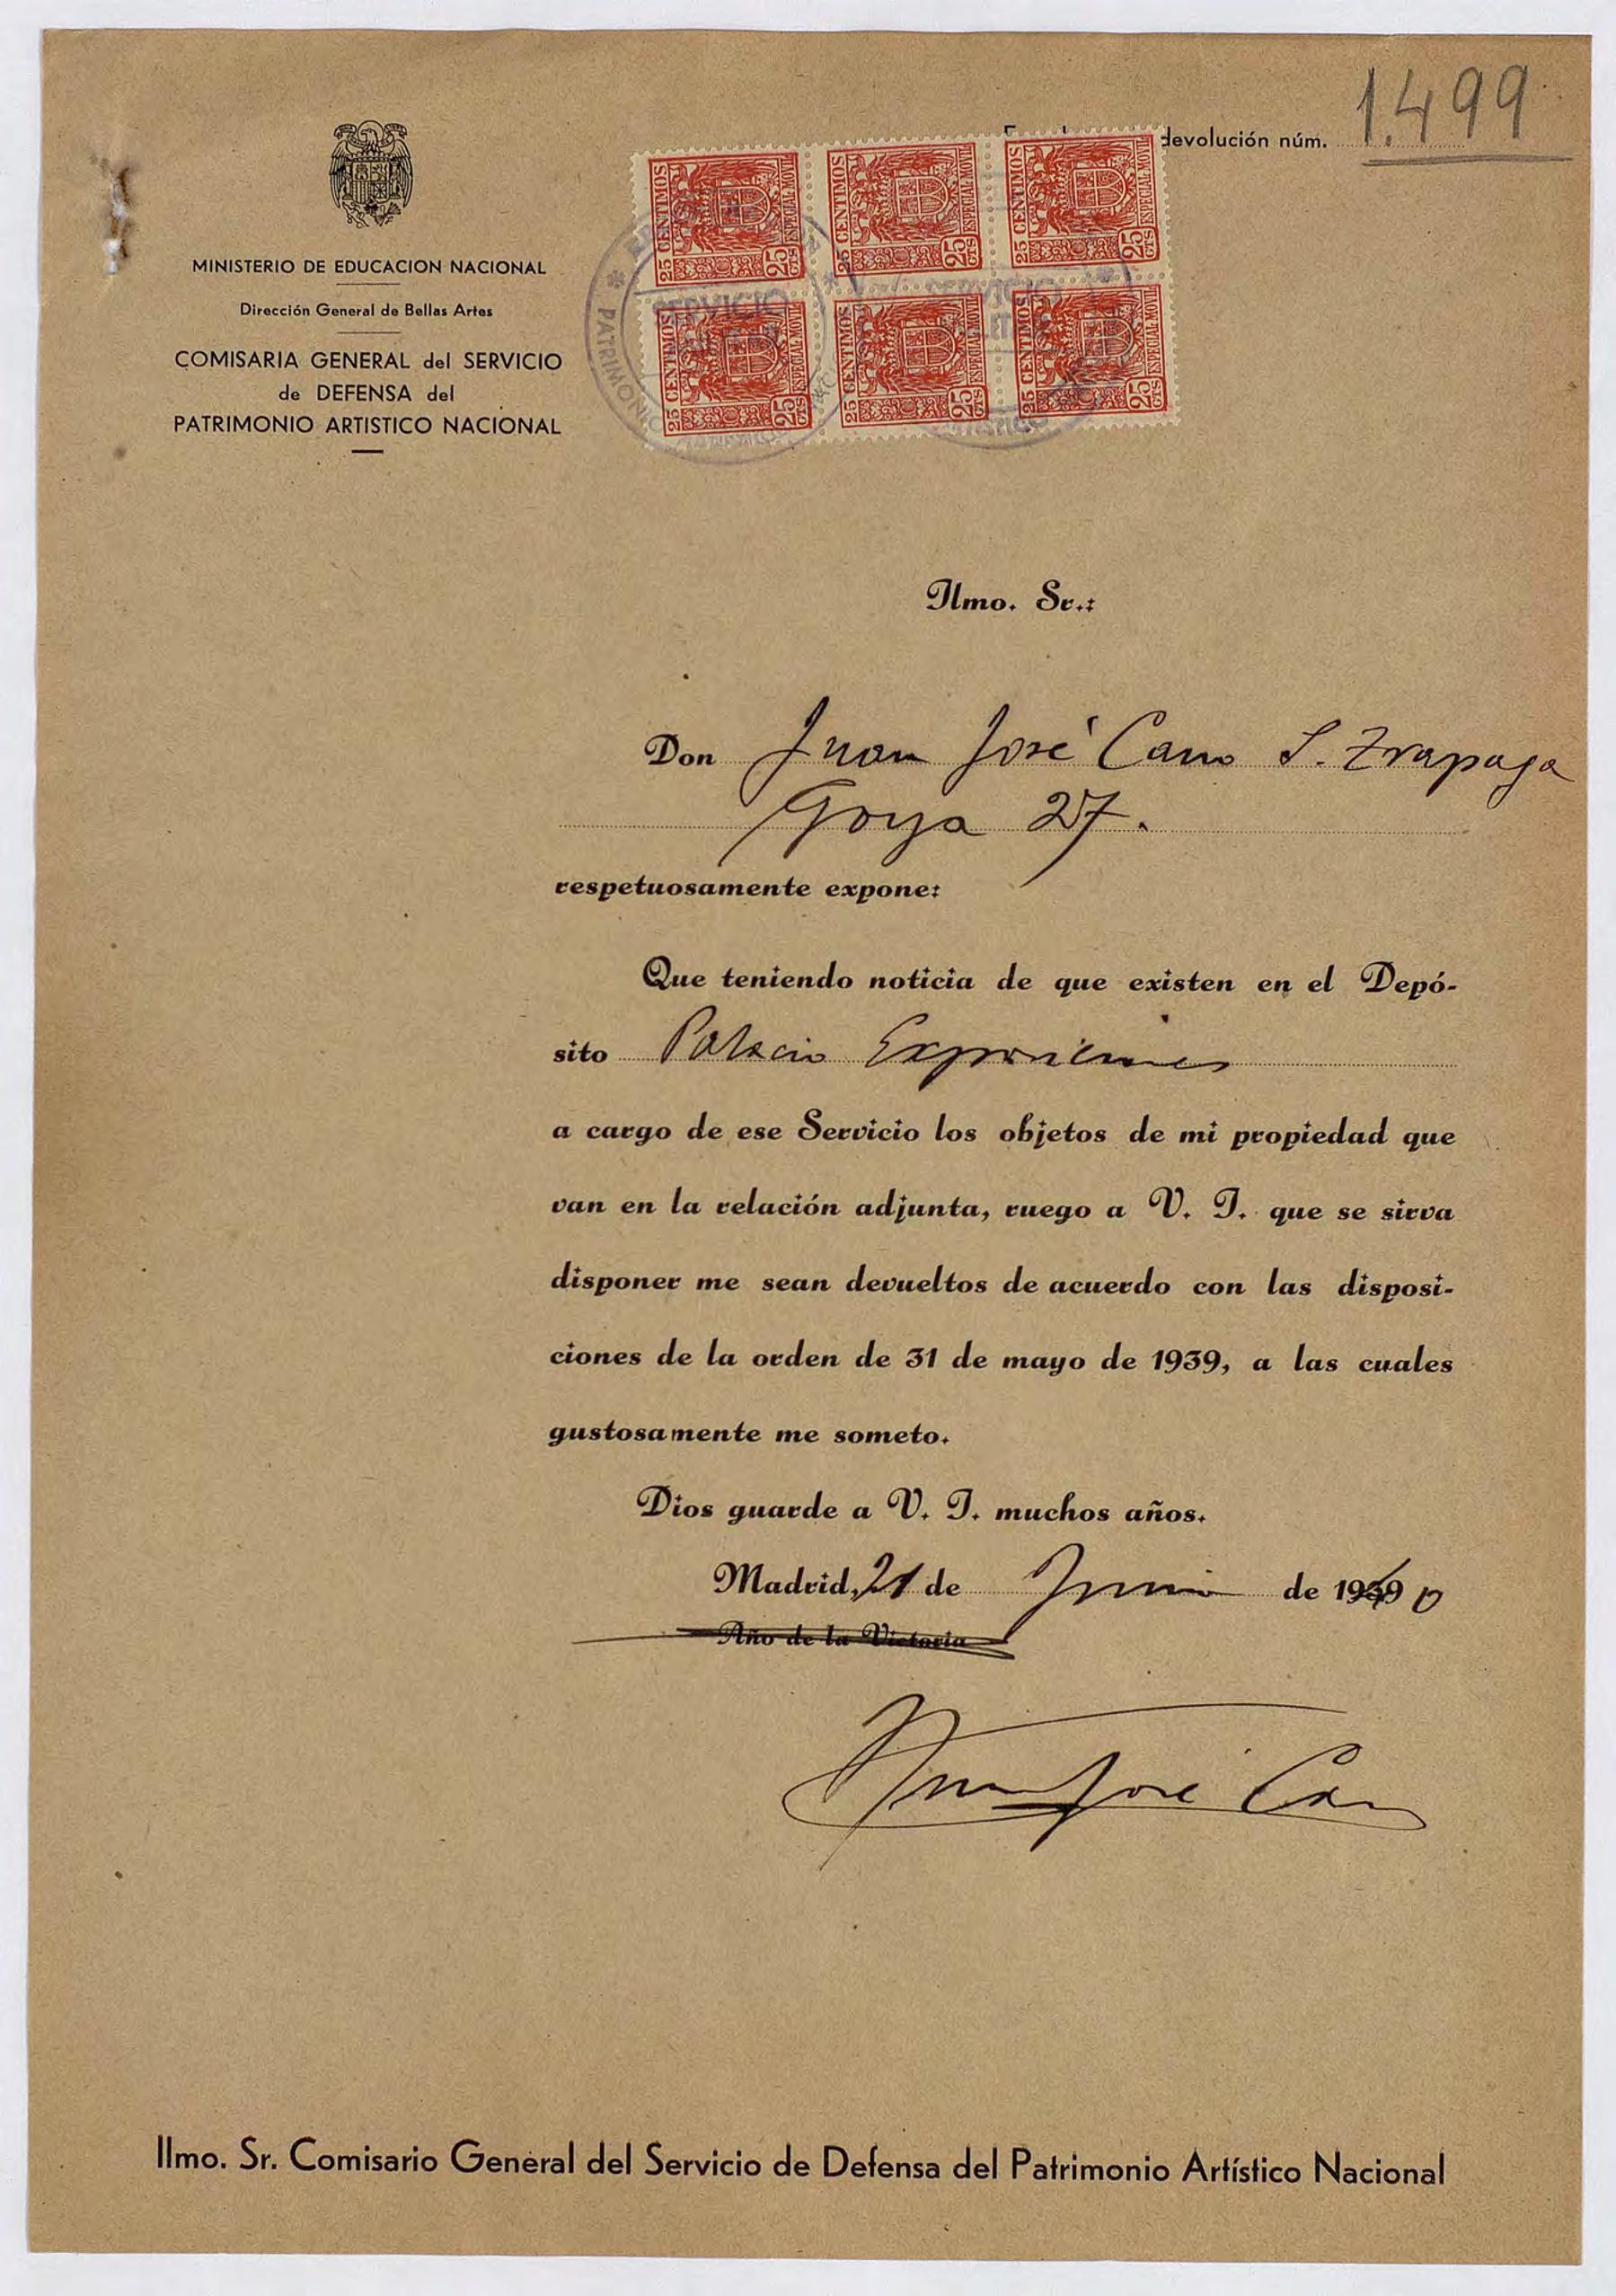 1.499
devolución núm.
MINISTERIO DE EDUCACION NACIONAL
Dirección General de Bellas Artes
COMISARIA GENERAL del SERVICIO
de DEFENSA del
PATRIMONIO ARTISTICO NACIONAL
25 CENTIMOS 25 CTS ESPECIAL MOVIL
25 CENTIMOS 25 CTS ESPECIAL MOVIL
25 CENTIMOS 25 CTS ESPECIAL MOVIL
25 CENTIMOS 25 CTS ESPECIAL MOVIL
25 CENTIMOS 25 CTS ESPECIAL MOVIL
25 CENTIMOS 25 CTS ESPECIAL MOVIL
SERVICIO
PATRIMONIO
Ilmo. Sr.:
Don Juan José Cano S. Trapaga
Goya 27.
respetuosamente expone:
Que teniendo noticia de que existen en el Depó-
sito Palacio Exposiciones
a cargo de ese Servicio los objetos de mi propiedad que
van en la relación adjunta, ruego a V. I. que se sirva
disponer me sean devueltos de acuerdo con las disposi-
ciones de la orden de 31 de mayo de 1939, a las cuales
gustosamente me someto.
Dios guarde a V. I. muchos años.
Madrid, 21 de Junio de 1940
Año de la Victoria
Juan José Cano
Ilmo. Sr. Comisario General del Servicio de Defensa del Patrimonio Artístico Nacional